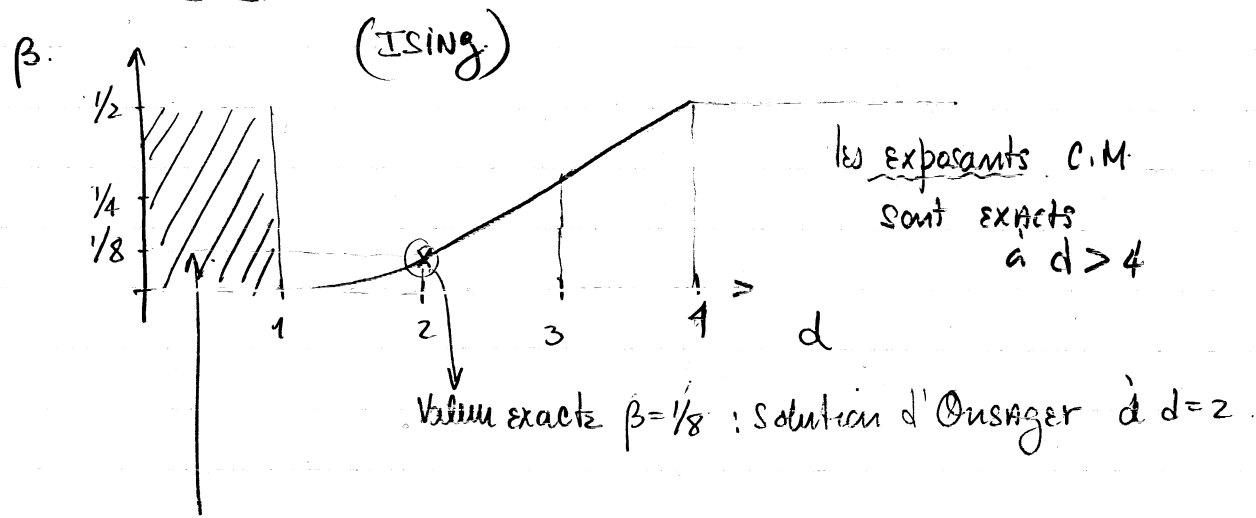 (ISING)
β.
1/2
1/4
1/8
1
2
3
4
d
les exposants C.M.
sont exacts
à d > 4
Valeur exacte β=1/8 : Solution d'Onsager à d=2.